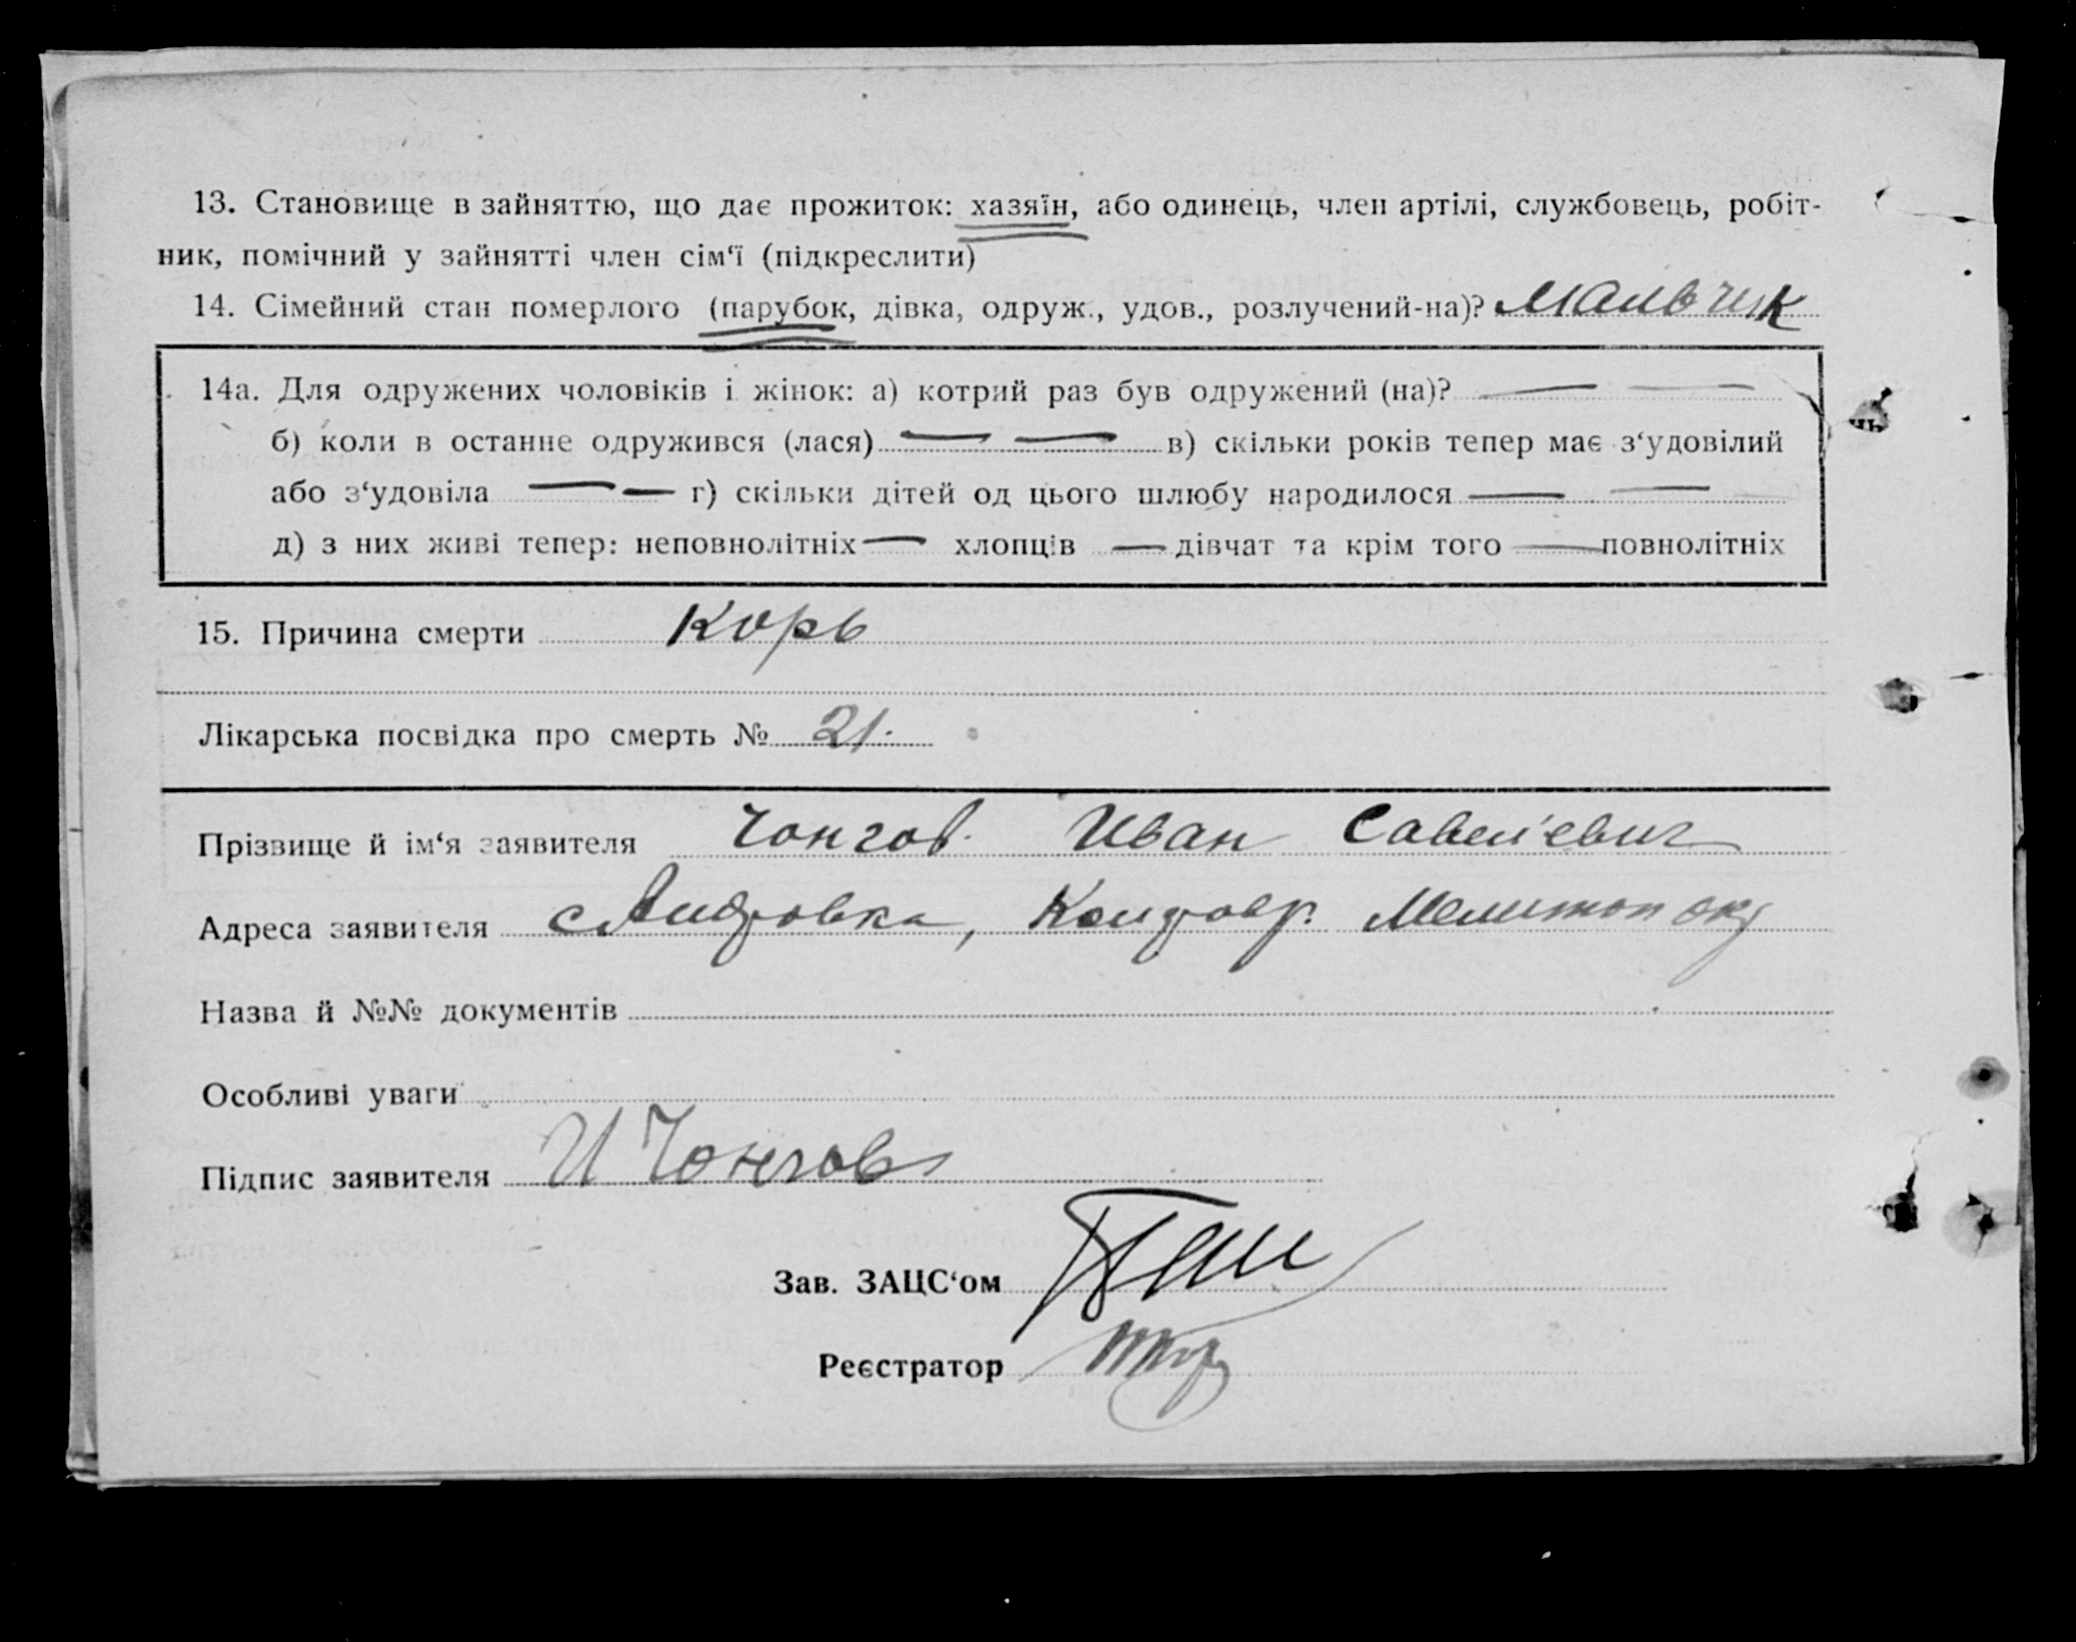 13. Становище в зайняттю, що дає прожиток: хазяїн, або одинець, член артілі, службовець, робіт-
ник, помічний у зайнятті член сім‘ї (підкреслити)
14. Сімейний стан померлого (парубок, дівка, одруж., удов., розлучений-на)? Мальчик
14а. Для одружених чоловіків і жінок: а) котрий раз був одружений (на)? — —
б) коли в останнє одружився (лася) — — в) скільки років тепер має з‘удовілий
або з‘удовіла — — г) скільки дітей од цього шлюбу народилося — —
д) з них живі тепер: неповнолітніх — хлопців — дівчат та крім того — повнолітніх
15. Причина смерти Корь
Лікарська посвідка про смерть № 21.
Прізвище й ім‘я заявителя Чонгов. Иван Савелієвич
Адреса заявителя Мелитоп окр
Назва й №№ документів
Особливі уваги
Підпис заявителя И Чонгов
Зав. ЗАЦС‘ом
Реєстратор